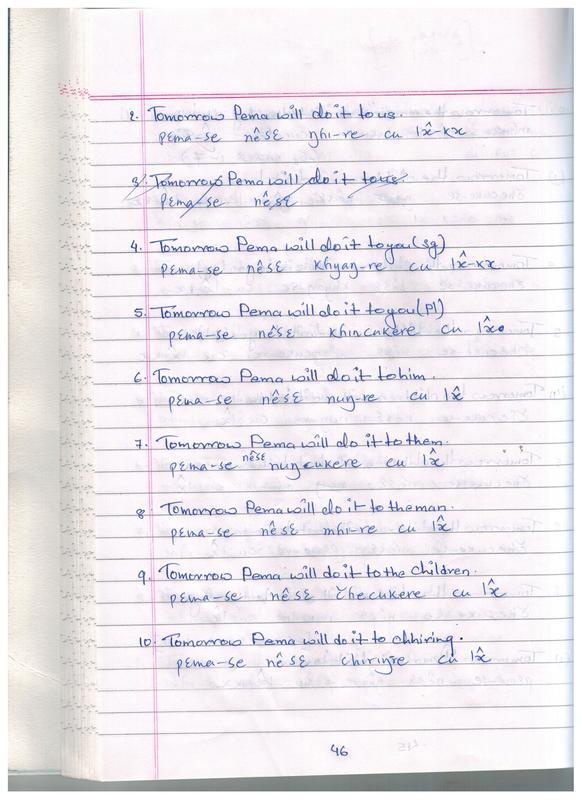 2. Tomorrow Pema will do it to us.
pɛma-se nêsɛ ŋhi-re cu lʌ̂-kʌ
3. Tomorrow Pema will do it to us.
pɛma-se nêsɛ
4. Tomorrow Pema will do it to you (sg)
pɛma-se nêsɛ khyaŋ-re cu lʌ̂-kʌ
5. Tomorrow Pema will do it to you (pl)
pɛma-se nêsɛ khincukere cu lʌ̂.
6. Tomorrow Pema will do it to him.
pɛma-se nêsɛ nuŋ-re cu lʌ̂
7. Tomorrow Pema will do it to them.
pɛma-se nêsɛ nuŋcukere cu lʌ̂
8 Tomorrow Pema will do it to the man.
pɛma-se nêsɛ mhi-re cu lʌ̂
9. Tomorrow Pema will do it to the children.
pɛma-se nêsɛ čhecukere cu lʌ̂
10. Tomorrow Pema will do it to chhiring.
pɛma-se nêsɛ chiriŋre cu lʌ̂
46